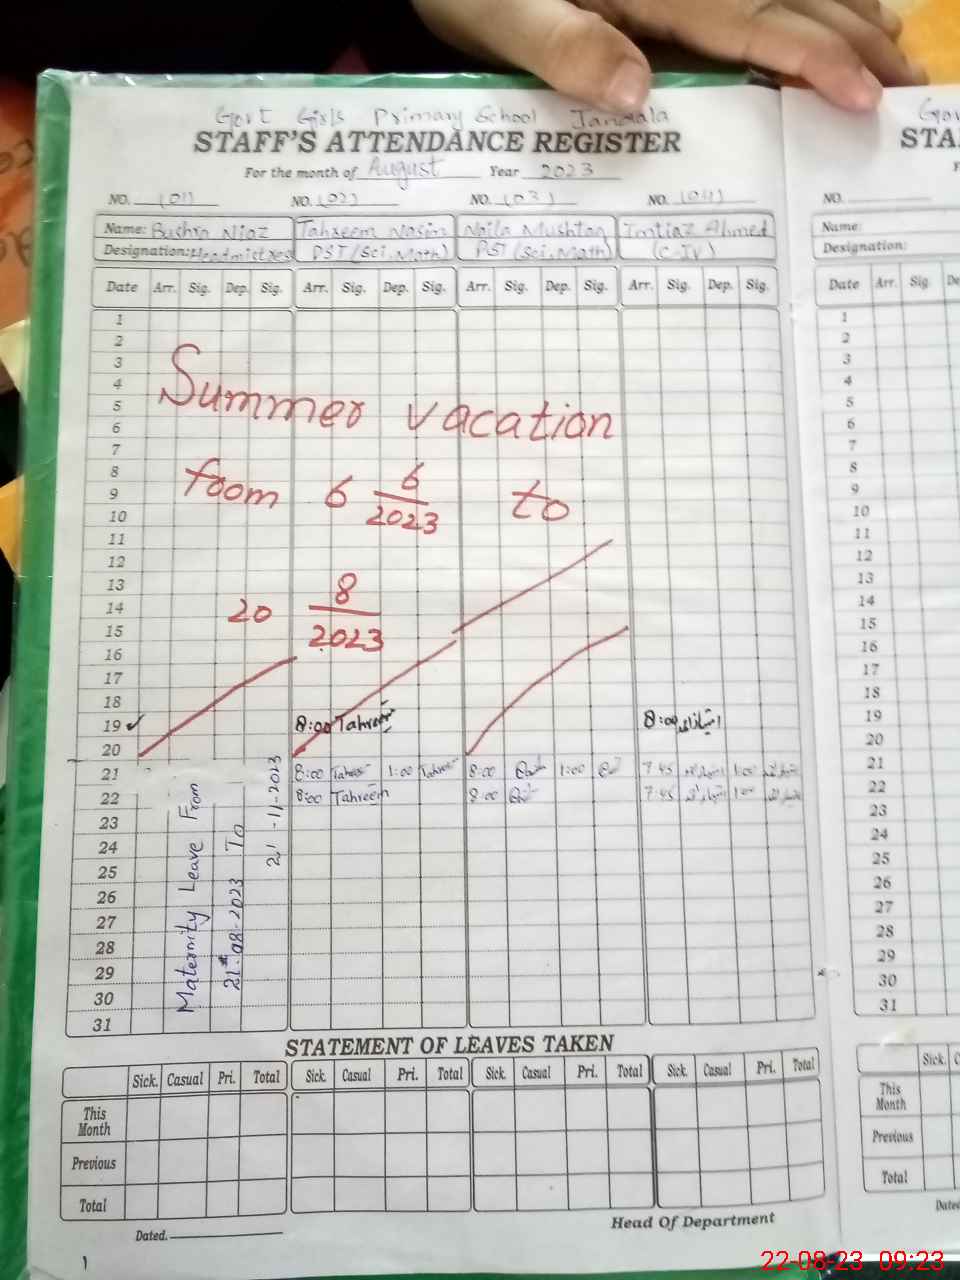 Govt Girls Primary School Jandala
STAFF'S ATTENDANCE REGISTER
For the month of August Year 2023
NO. (01) NO. (02) NO. (03) NO. (04)
Name: Bushra Niaz Tahreem Nasim Naila Mushtaq Imtiaz Ahmed
Designation: Headmistress PST (Sci, Math) PST (Sci, Math) (C-IV)
Date Arr. Sig. Dep. Sig. Arr. Sig. Dep. Sig. Arr. Sig. Dep. Sig. Arr. Sig. Dep. Sig.
1
2
3
4
5
6
7
8
9
10
11
12
13
14
15
16
17
18
19 8:00 Tahreem 8:00 امتیاز احمد
20
21 8:00 1:00 8:00 1:00 7:45 1:00
22 8:00 Tahreem 8:00 7:45 1:00
23
24
25
26
27
28
29
30
31
Summer vacation
from 6 6/2023 to
20 8/2023
Maternity Leave From
21st-08-2023 To
21-11-2023
STATEMENT OF LEAVES TAKEN
Sick. Casual Pri. Total Sick. Casual Pri. Total Sick. Casual Pri. Total Sick. Casual Pri. Total
This Month
Previous
Total
Dated. Head Of Department
1
Gov
STA
F
NO.
Name:
Designation:
Date Arr. Sig. De
1
2
3
4
5
6
7
8
9
10
11
12
13
14
15
16
17
18
19
20
21
22
23
24
25
26
27
28
29
30
31
Sick. C
This Month
Previous
Total
Dated
22-08-23 09:23